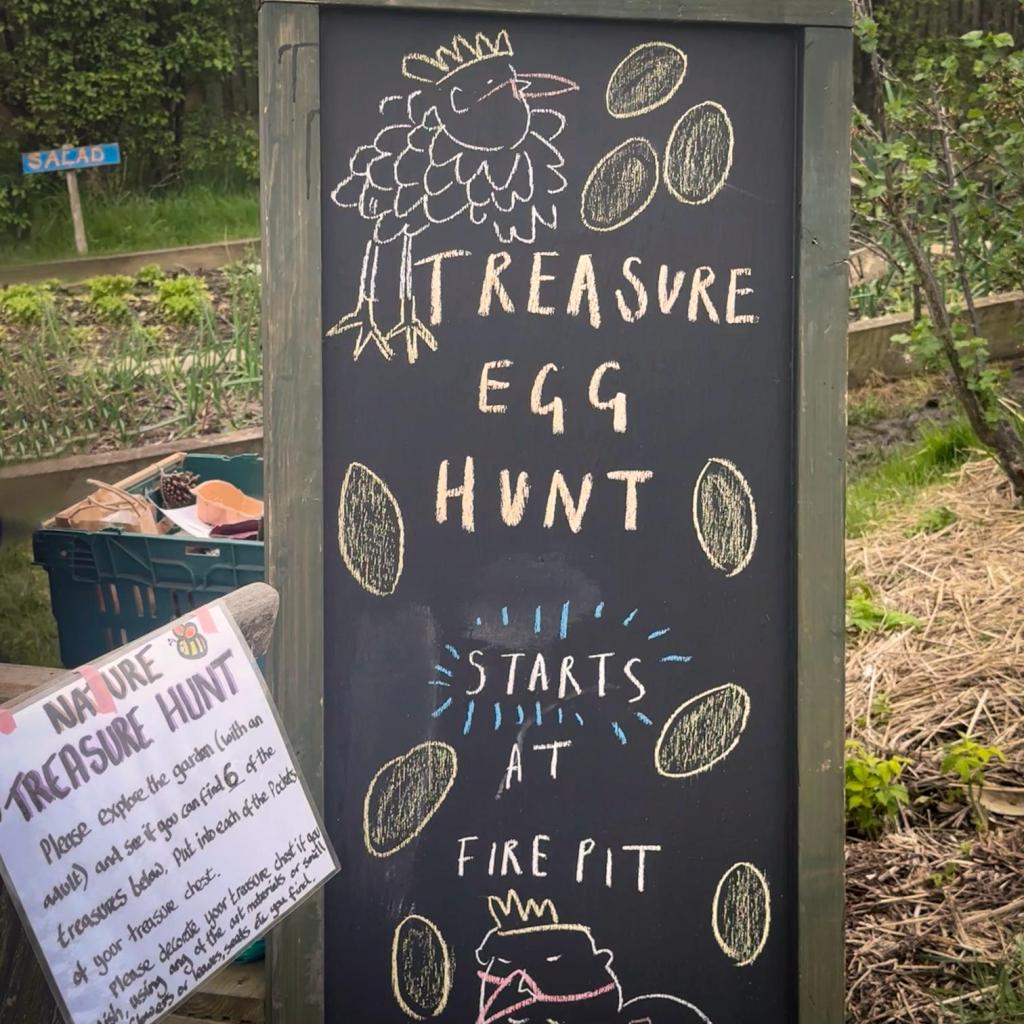 SALAD
TREASURE
EGG
HUNT
STARTS
AT
FIRE PIT
NATURE
TREASURE HUNT
Please explore the garden (with an
adult) and see if you can find 6 of the
treasures below. Put into each of the Pockets
of your treasure chest.
Please decorate your treasure chest if you
wish, using any of the art materials or small
flowers or leaves, seeds etc you find.